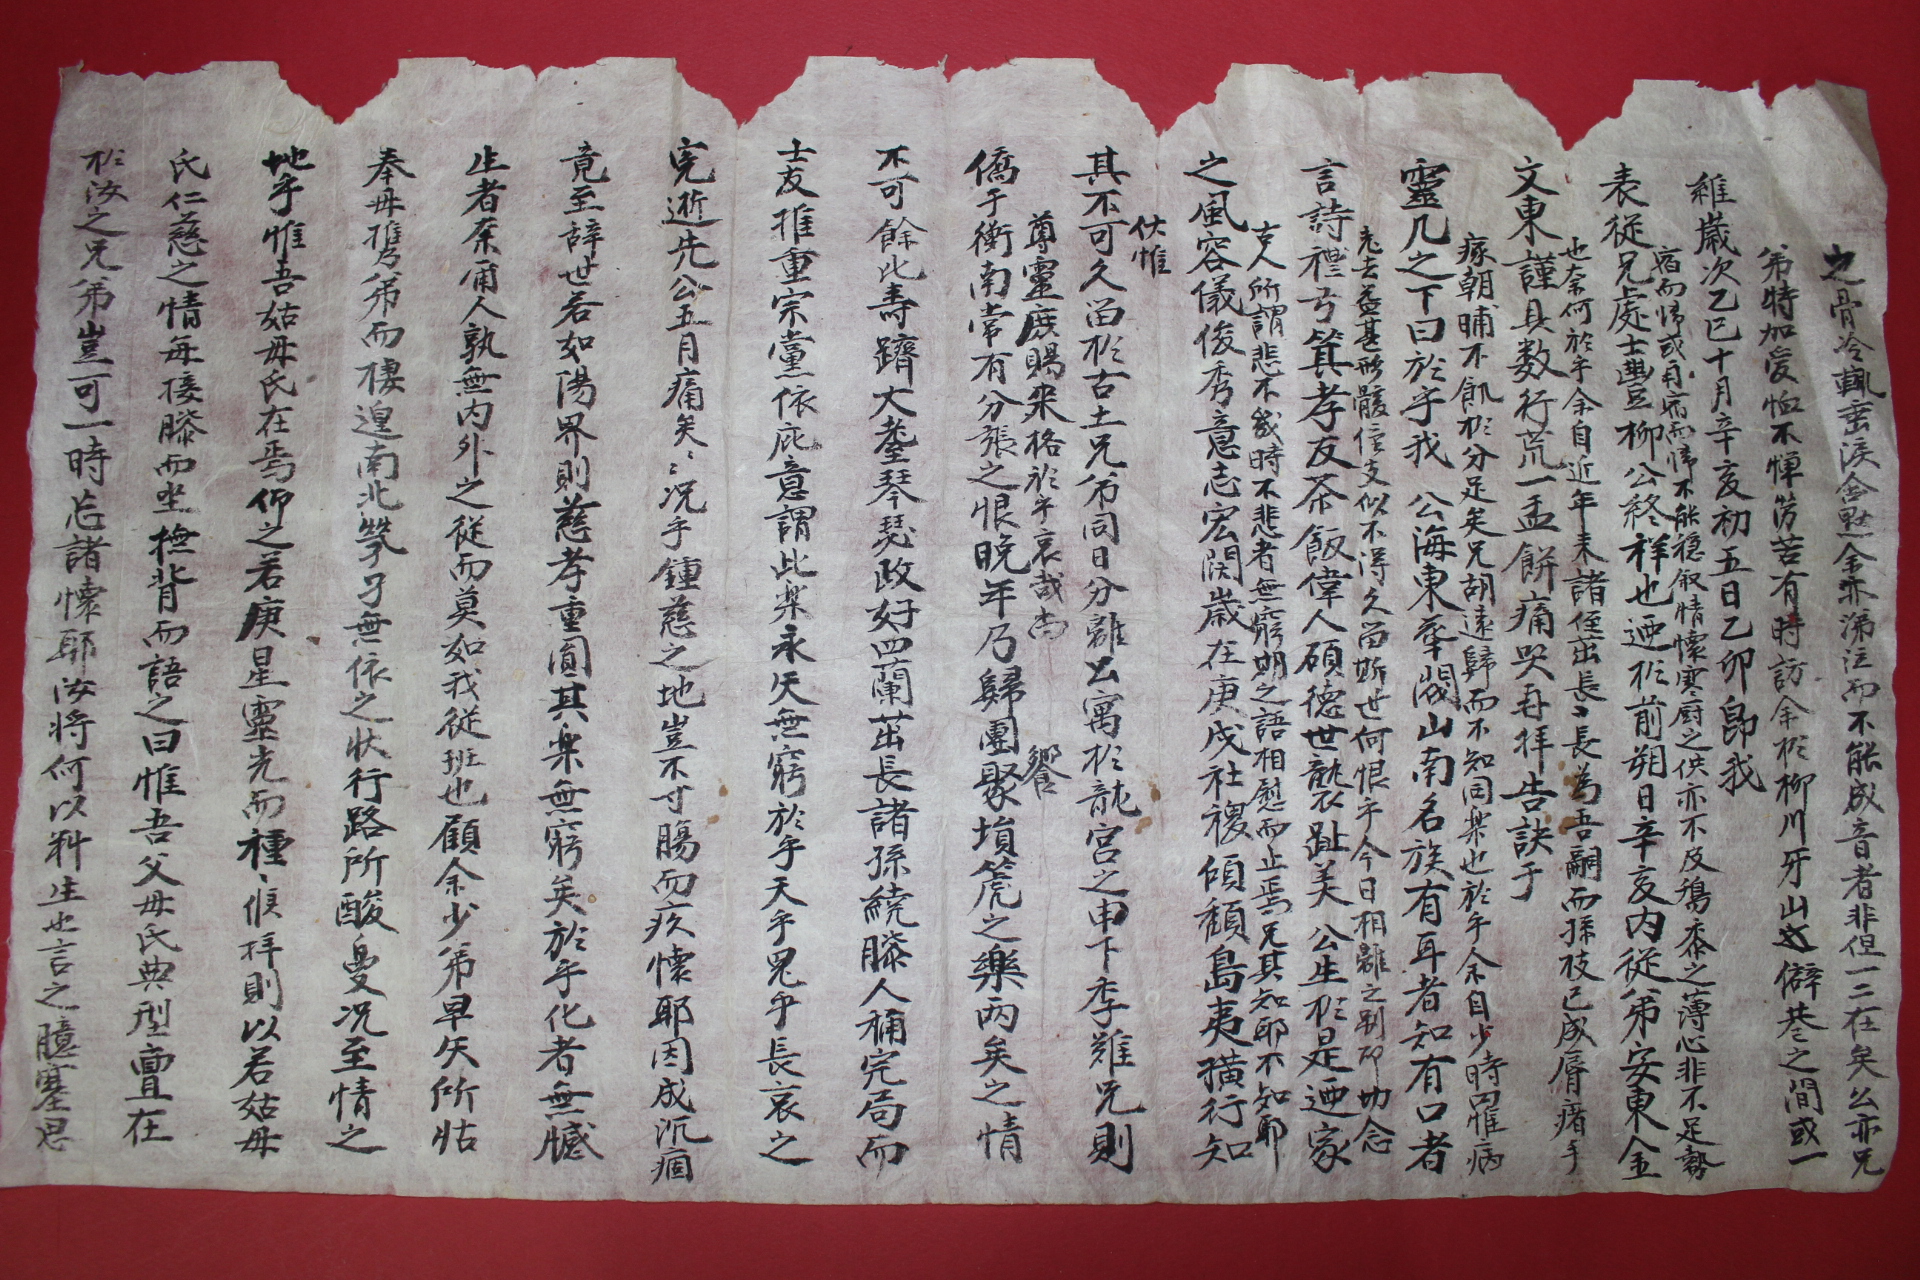 維歲次乙巳十月辛亥初五日乙卯卽我
表從兄處士豊柳公終祥也迺於前朔日辛亥內從弟安東金
文東謹具数行荒一盂餅痛哭再拜告訣于
靈几之下曰於乎我 公海東華閥山南名族有耳者知有口者
言詩禮弓箕孝友茶飯偉人碩德世襲趾美 公生於是迺家
之風容儀俊秀意志宏闊歲在庚戌社稷傾覆島夷獷行知
其不可久留於古土兄弟同日分離公寓於龍宮之申下李難兄則
僑于衛南常有分張之恨晚年乃歸團聚塤篪之樂兩矣之情
不可餘此壽躋大耋琴瑟政好四蘭茁長諸孫繞膝人稱完局而
士友推重宗黨依庇意謂此樂永矢無窮於乎天乎鬼乎長哀之
完逝先公五月痛矣〻况乎鍾慈之地豈不寸腸而疚懷耶因成沉痼
竟至辞世若如陽界則慈孝重圓其樂無窮矣於乎化者無憾
生者柰甭人孰無內外之從而莫如我從班也顧余少弟早失所怙
奉毋携弟而棲遑南北煢孑無依之状行路所酸曼况至情之
地乎惟吾姑母氏在焉仰之若庚星靈光而種〻候拜則以若姑母
氏仁慈之情每接膝而坐撫背而語之曰惟吾父母氏典型亶在
於汝之兄弟豈可一時忘諸懷耶汝将何以料生也言之臆塞思
之骨冷輒垂淚含愁余亦涕泣而不能成音者非但一二在矣公亦兄
弟特加愛恤不憚勞苦有時訪余於柳川牙山之僻巷之間或一
宿而帰或再宿而帰不能穩叙情懷寒廚之供亦不及鷄黍之薄心非不足勢
也奈何於乎余自近年来諸侄出長〻長為吾嗣而孫枝已成屠瘏手
瘃朝晡不飢於分足矣兄胡遠歸而不知同樂也於乎余自少時四惟病
克去益甚形骸僅支似不得久留斯世何恨乎今日相離之别却切念
古人所謂悲不幾時不悲者無窮期之語相慰而止焉兄其知耶不知耶
伏惟
尊靈庶賜来格於乎哀哉尚
饗